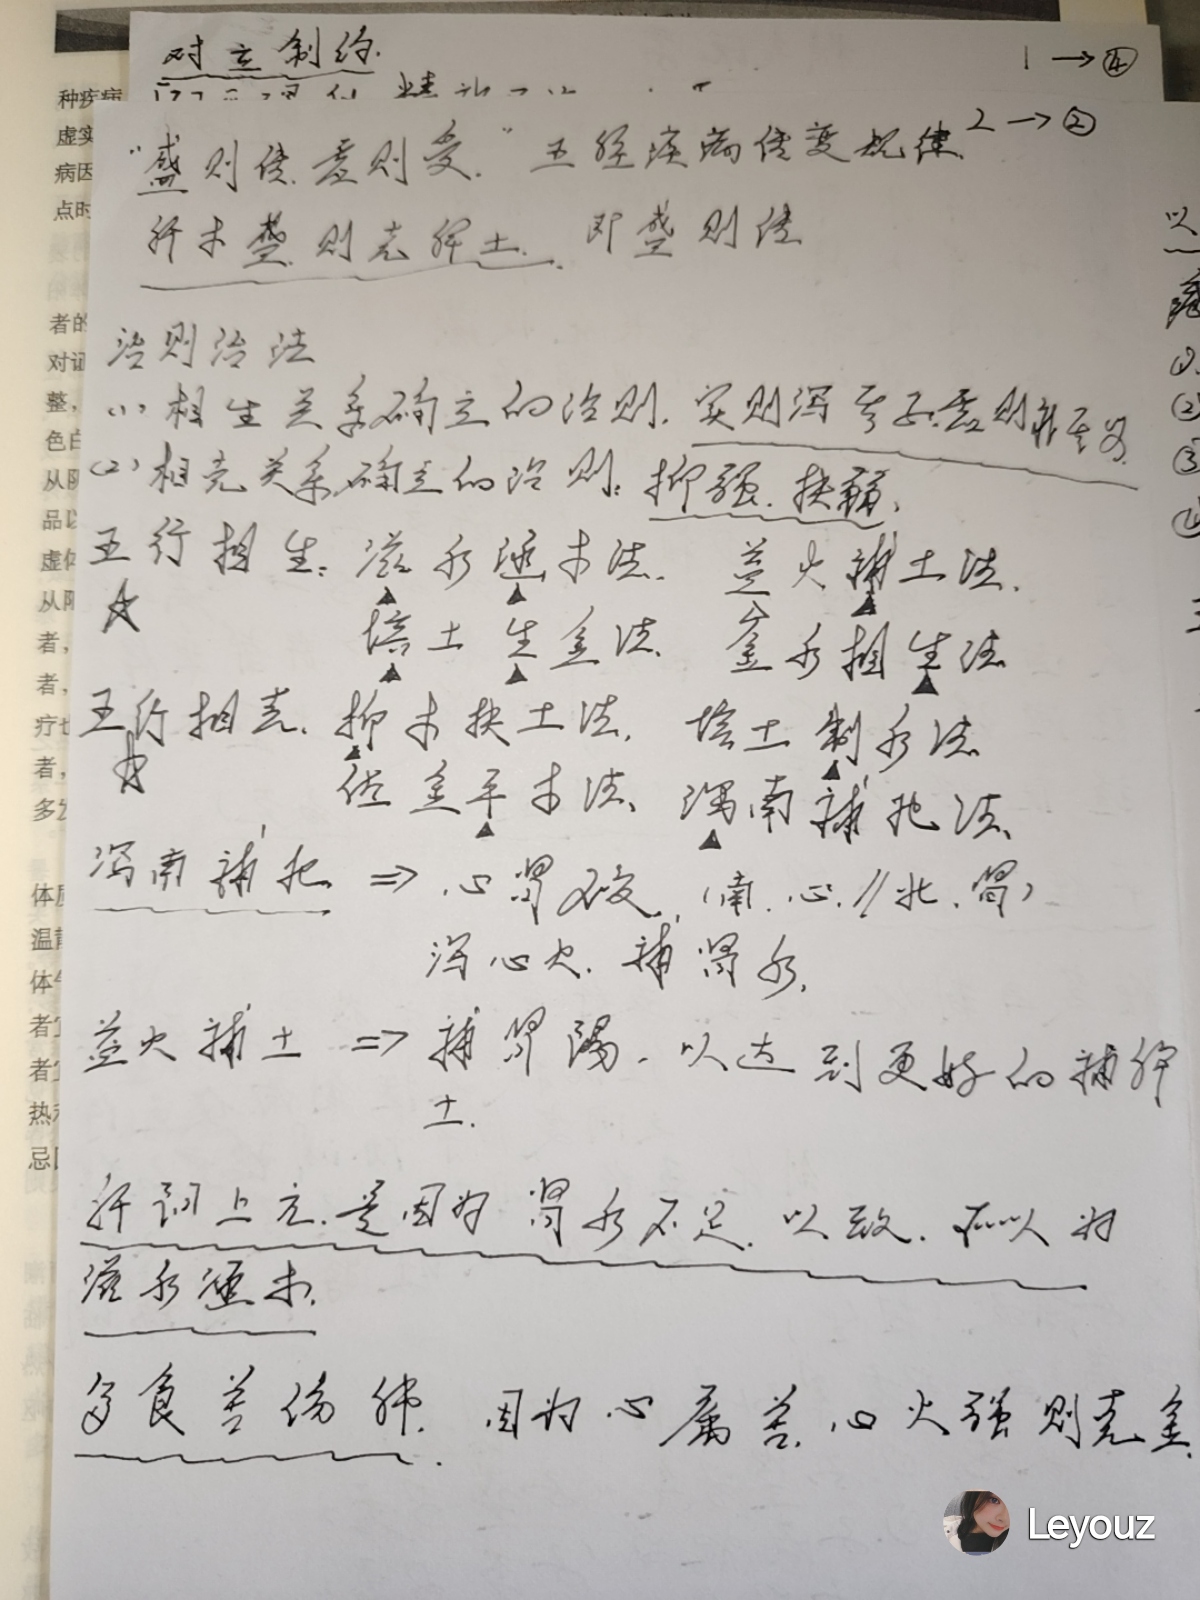 对立制约.
1→④
种疾病
虚实
病因
点时
者的
对证
整,
色白
从阴
品以
虚体
从阴
者,
者,
疗也
者,
多发
体质
温
体
者宜
者宜
热
忌
2→②
"盛则传.虚则受." 五经疾病传变规律.
肝木盛.则克脾土. 即盛则传
治则治法
(1) 相生关系确立的治则.实则泻其子.虚则补其母.
(2) 相克关系确立的治则:抑强.扶弱.
五行相生: 滋水涵木法. 益火補土法.
培土生金法. 金水相生法
五行相克. 抑木扶土法, 培土制水法.
佐金平木法、泻南補北法、
泻南補北 => 心腎不交.(南.心.//北.腎)
泻心火.補腎水.
益火補土 => 補腎陽.以达到更好的補脾
土.
肝阳上亢.是因为腎水不足.以致.所以为
滋水涵木.
多食苦伤肺. 因为心属苦.心火强则克金.
以
①.
②
③
Leyouz